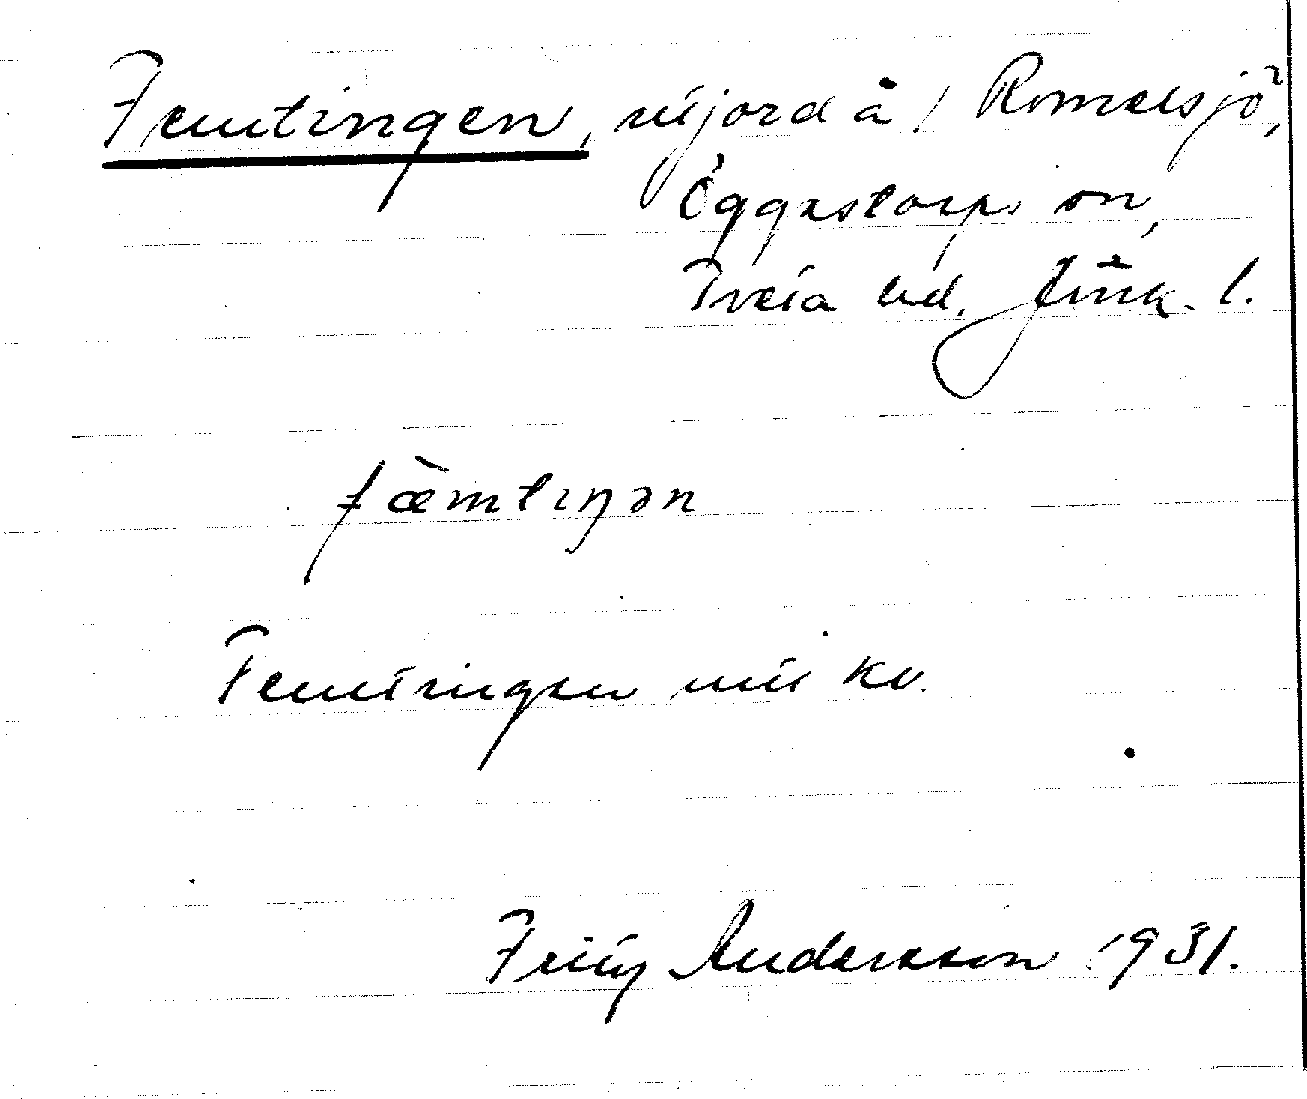 Femtingen, nyjord å / Romelsjö,
Eggestorps sn,
Tveta hd, Jönk. l.
fæ̀mtiŋən
Femtingen
Fritz Andersson 1931.